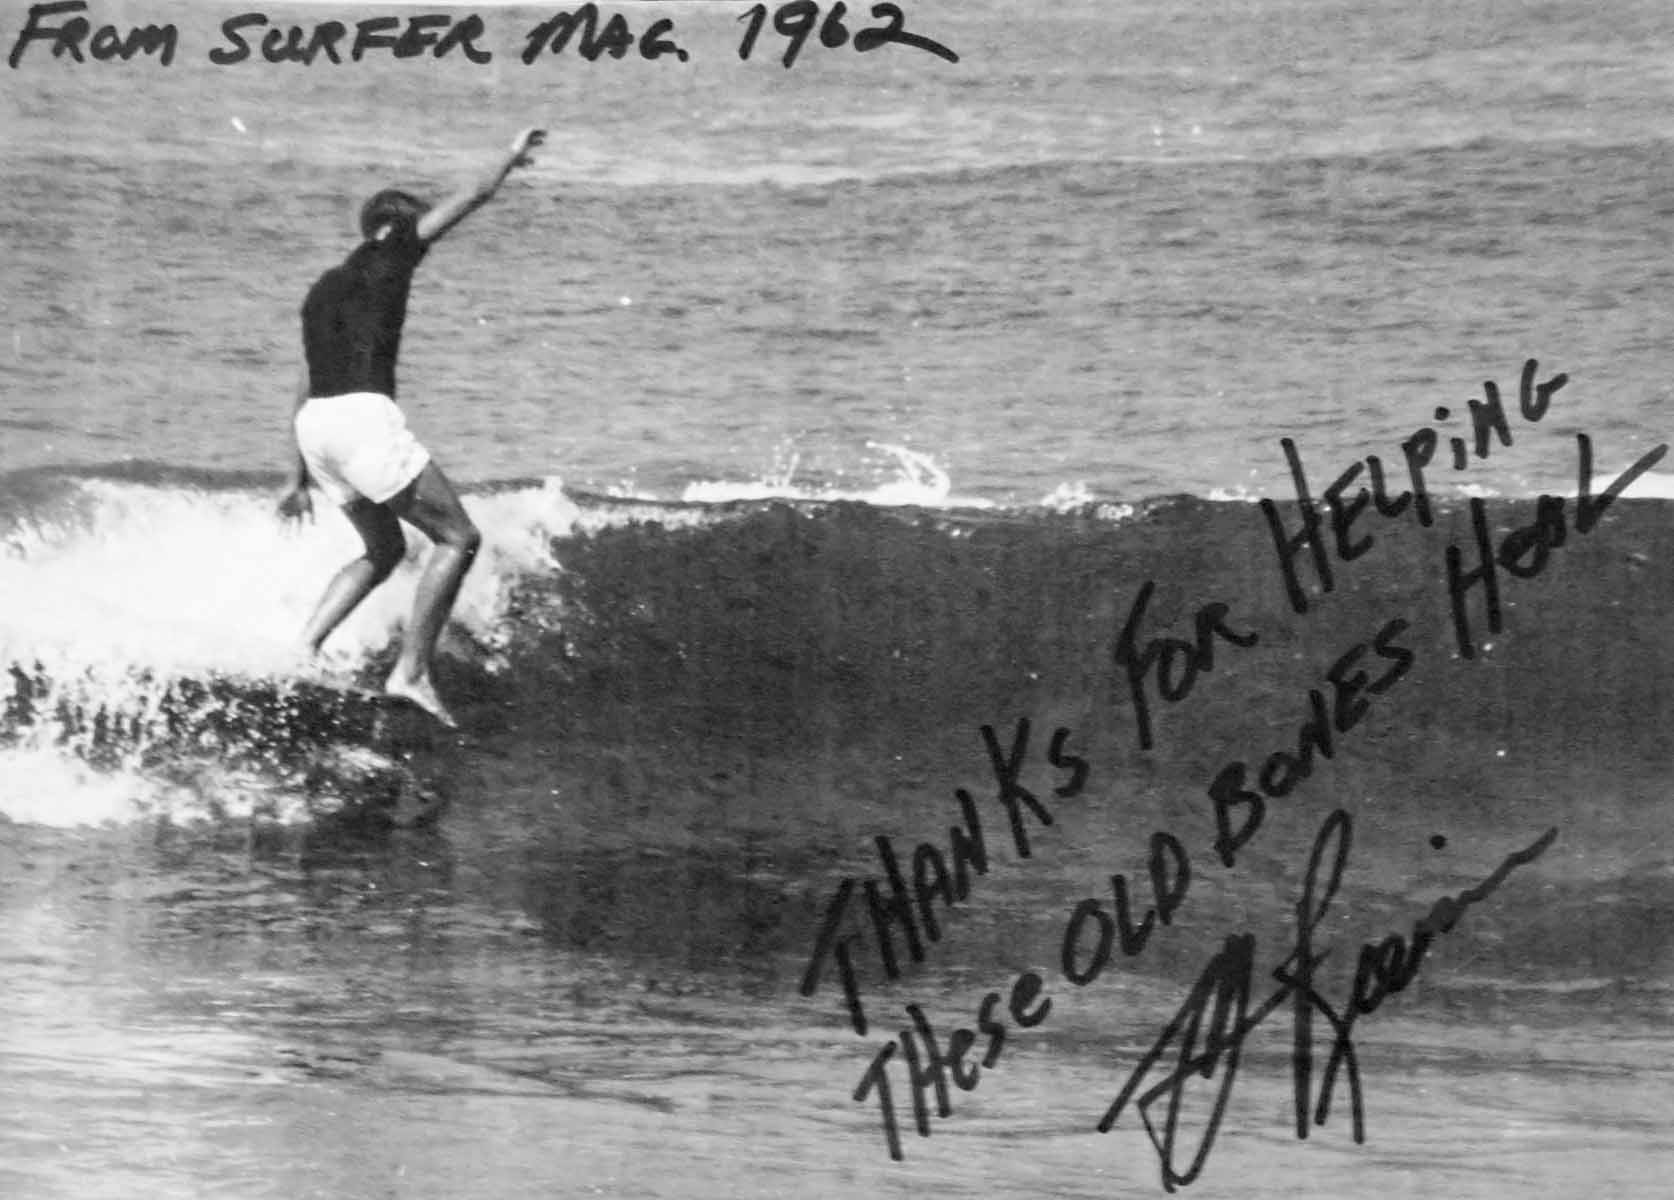 FROM SURFER MAG. 1962
THANKS FOR HELPING
THESE OLD BONES HEAL